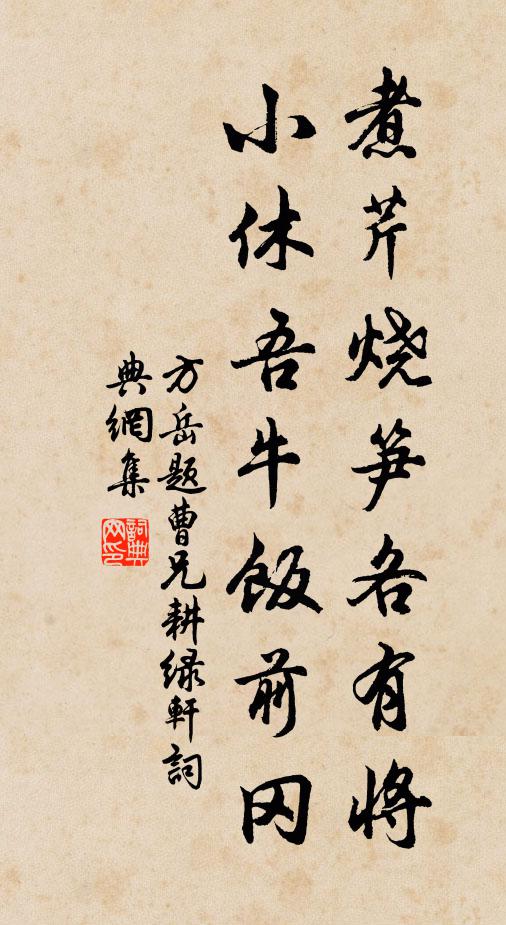 煮芹烧笋各有将
小休吾牛饭前冈
方岳题曹兄耕绿軒詞
典網集
詞典
网印